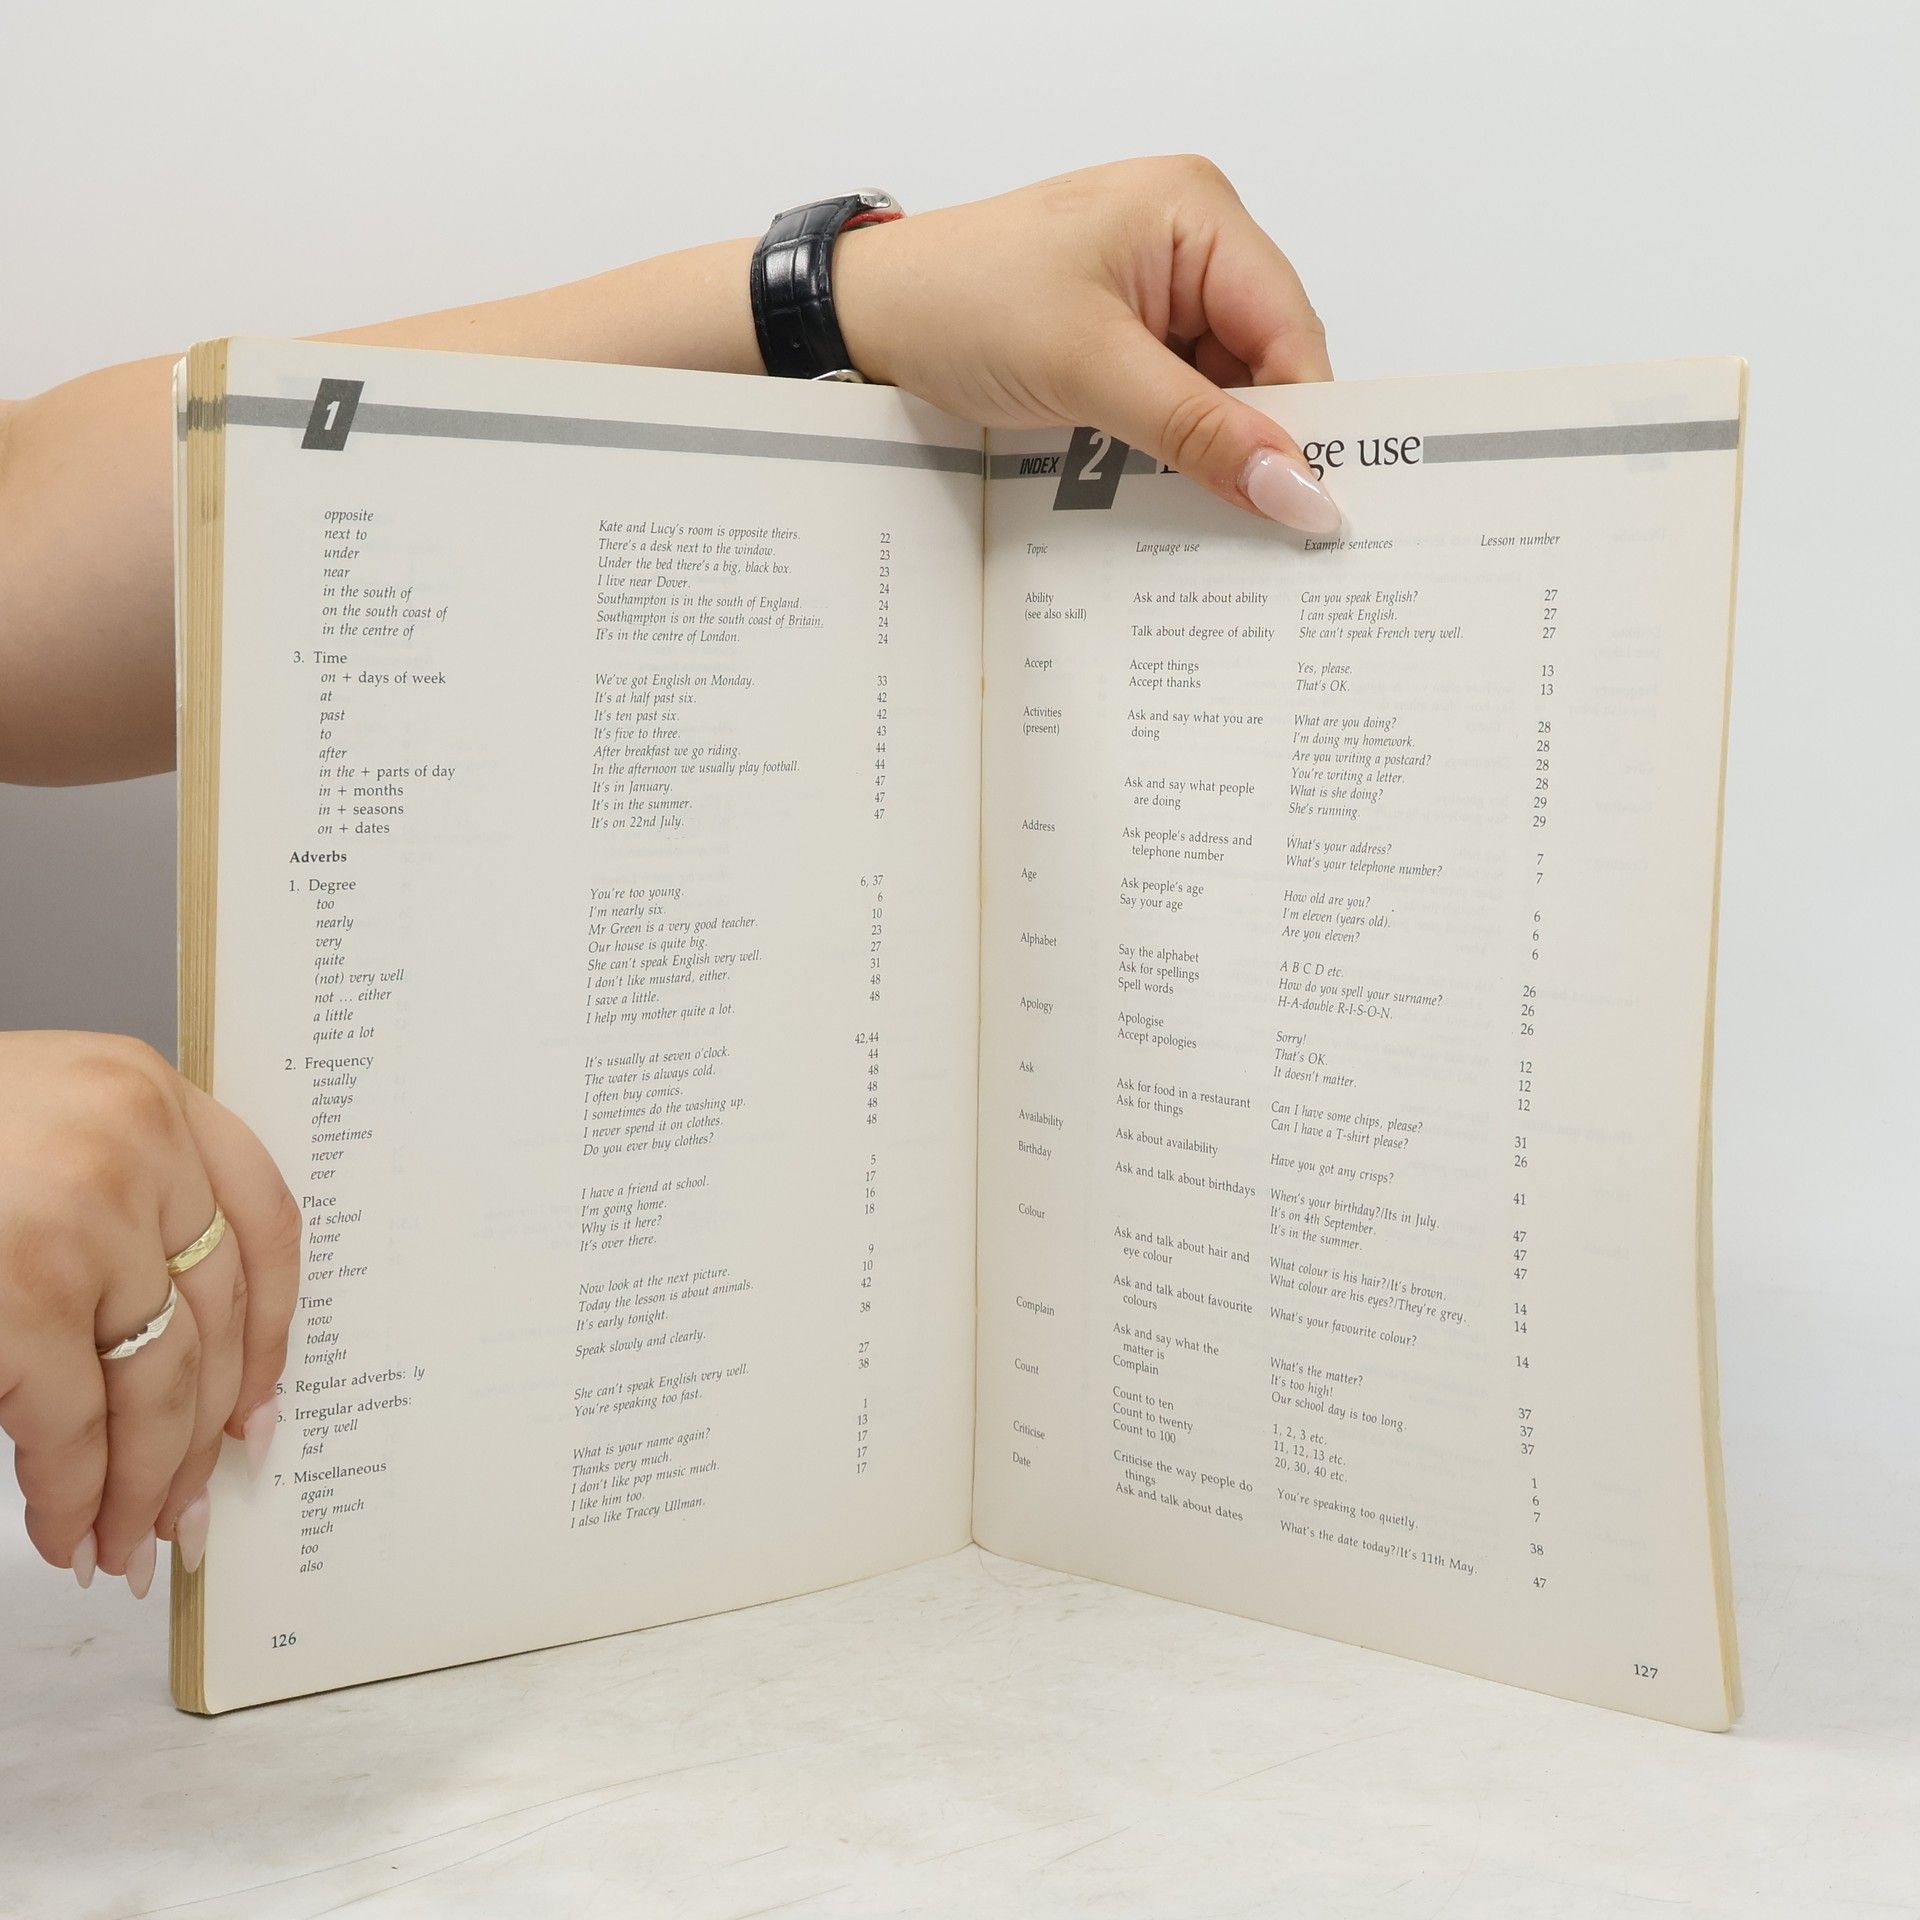 1
opposite Kate and Lucy's room is opposite theirs. 22
next to There's a desk next to the window. 23
under Under the bed there's a big, black box. 23
near I live near Dover. 24
in the south of Southampton is in the south of England. 24
on the south coast of Southampton is on the south coast of Britain. 24
in the centre of It's in the centre of London. 24
3. Time
on + days of week We've got English on Monday. 33
at It's at half past six. 42
past It's ten past six. 42
to It's five to three. 43
after After breakfast we go riding. 44
in the + parts of day In the afternoon we usually play football. 44
in + months It's in January. 47
in + seasons It's in the summer. 47
on + dates It's on 22nd July. 47
Adverbs
1. Degree
too You're too young. 6, 37
nearly I'm nearly six. 6
very Mr Green is a very good teacher. 10
quite Our house is quite big. 23
(not) very well She can't speak English very well. 27
not ... either I don't like mustard, either. 31
a little I save a little. 48
quite a lot I help my mother quite a lot. 48
2. Frequency
usually It's usually at seven o'clock. 42,44
always The water is always cold. 44
often I often buy comics. 48
sometimes I sometimes do the washing up. 48
never I never spend it on clothes. 48
ever Do you ever buy clothes? 48
Place
at school I have a friend at school. 5
home I'm going home. 17
here Why is it here? 16
over there It's over there. 18
Time
now Now look at the next picture. 9
today Today the lesson is about animals. 10
tonight It's early tonight. 42
5. Regular adverbs: ly Speak slowly and clearly. 38
6. Irregular adverbs:
very well She can't speak English very well. 27
fast You're speaking too fast. 38
7. Miscellaneous
again What is your name again? 1
very much Thanks very much. 13
much I don't like pop music much. 17
too I like him too. 17
also I also like Tracey Ullman. 17
126
INDEX 2 ge use
Topic Language use Example sentences Lesson number
Ability Ask and talk about ability Can you speak English? 27
(see also skill) I can speak English. 27
Talk about degree of ability She can't speak French very well. 27
Accept Accept things Yes, please. 13
Accept thanks That's OK. 13
Activities Ask and say what you are What are you doing? 28
(present) doing I'm doing my homework. 28
Are you writing a postcard? 28
You're writing a letter. 28
Ask and say what people What is she doing? 29
are doing She's running. 29
Address Ask people's address and What's your address? 7
telephone number What's your telephone number? 7
Age Ask people's age How old are you? 6
Say your age I'm eleven (years old). 6
Are you eleven? 6
Alphabet Say the alphabet A B C D etc. 26
Ask for spellings How do you spell your surname? 26
Spell words H-A-double R-I-S-O-N. 26
Apology Apologise Sorry! 12
Accept apologies That's OK. 12
It doesn't matter. 12
Ask Ask for food in a restaurant Can I have some chips, please? 31
Ask for things Can I have a T-shirt please? 26
Availability Ask about availability Have you got any crisps? 41
Birthday Ask and talk about birthdays When's your birthday?/Its in July. 47
It's on 4th September. 47
It's in the summer. 47
Colour Ask and talk about hair and What colour is his hair?/It's brown. 14
eye colour What colour are his eyes?/They're grey. 14
Ask and talk about favourite What's your favourite colour? 14
colours
Complain Ask and say what the What's the matter? 37
matter is It's too high! 37
Complain Our school day is too long. 37
Count Count to ten 1, 2, 3 etc. 1
Count to twenty 11, 12, 13 etc. 6
Count to 100 20, 30, 40 etc. 7
Criticise Criticise the way people do You're speaking too quietly. 38
things
Date Ask and talk about dates What's the date today?/It's 11th May. 47
127